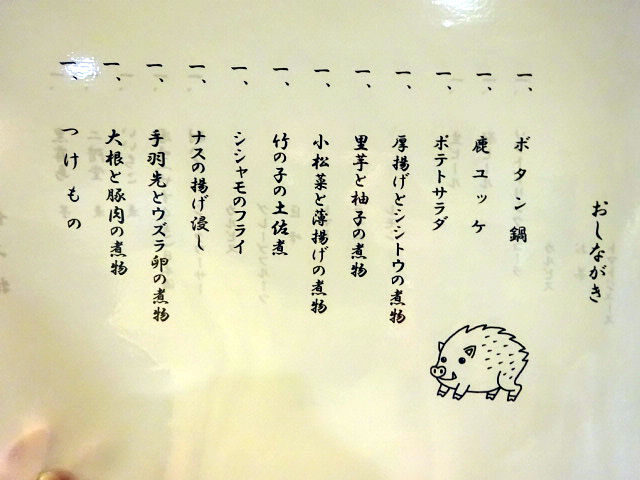 おしながき
一、ボタン鍋
一、鹿ユッケ
一、ポテトサラダ
一、厚揚げとシシトウの煮物
一、里芋と柚子の煮物
一、小松菜と薄揚げの煮物
一、竹の子の土佐煮
一、シシャモのフライ
一、ナスの揚げ浸し
一、手羽先とウズラ卵の煮物
一、大根と豚肉の煮物
一、つけもの